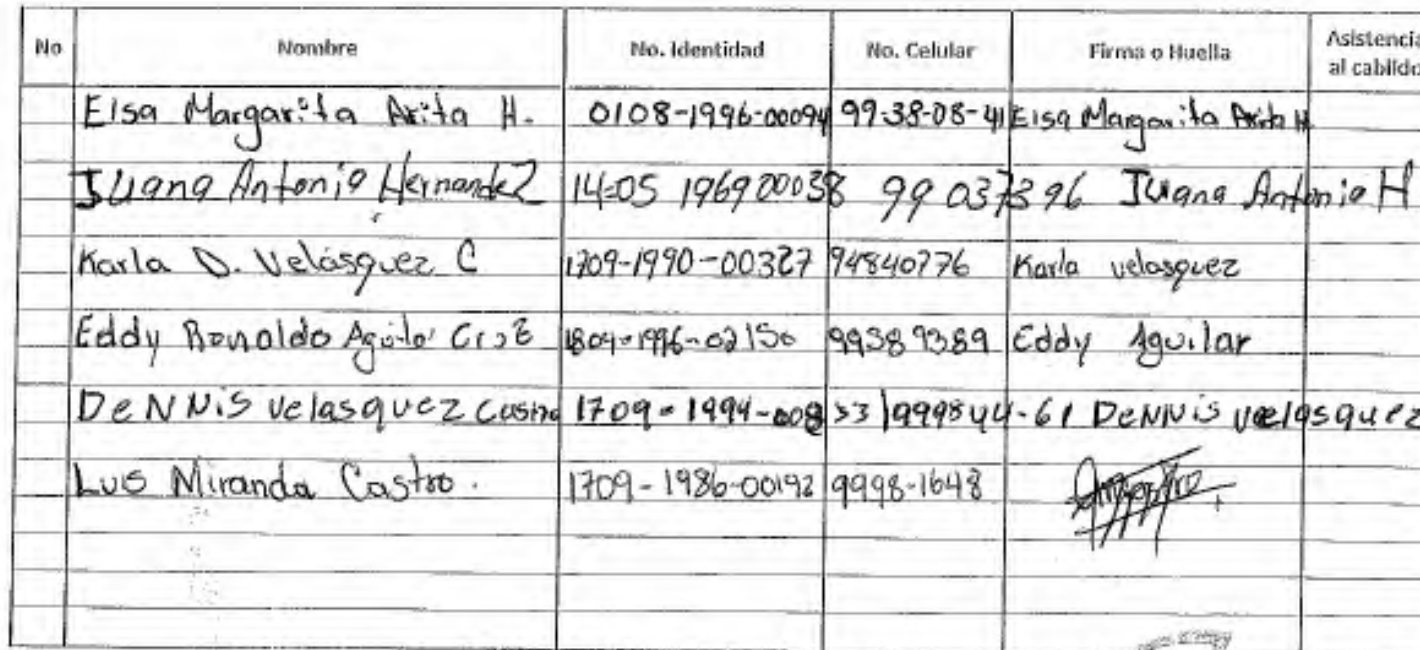 No Nombre No. Identidad No. Celular Firma o Huella Asistencia al cabildo
Elsa Margarita Arita H. 0108-1996-00094 99-38-08-41 Elsa Margarita Arita H
Juana Antonia Hernandez 14-05 196900038 99 037396 Juana Antonia H
Karla D. Velásquez C 1709-1990-00327 94840776 Karla velasquez
Eddy Ronaldo Aguilar 1804-1996-02150 99389389 Eddy Aguilar
DeNNis velasquez 1709-1994- 33 999844-61 DeNNis velasquez
Luis Miranda Castro. 1709-1986-00192 9998-1648